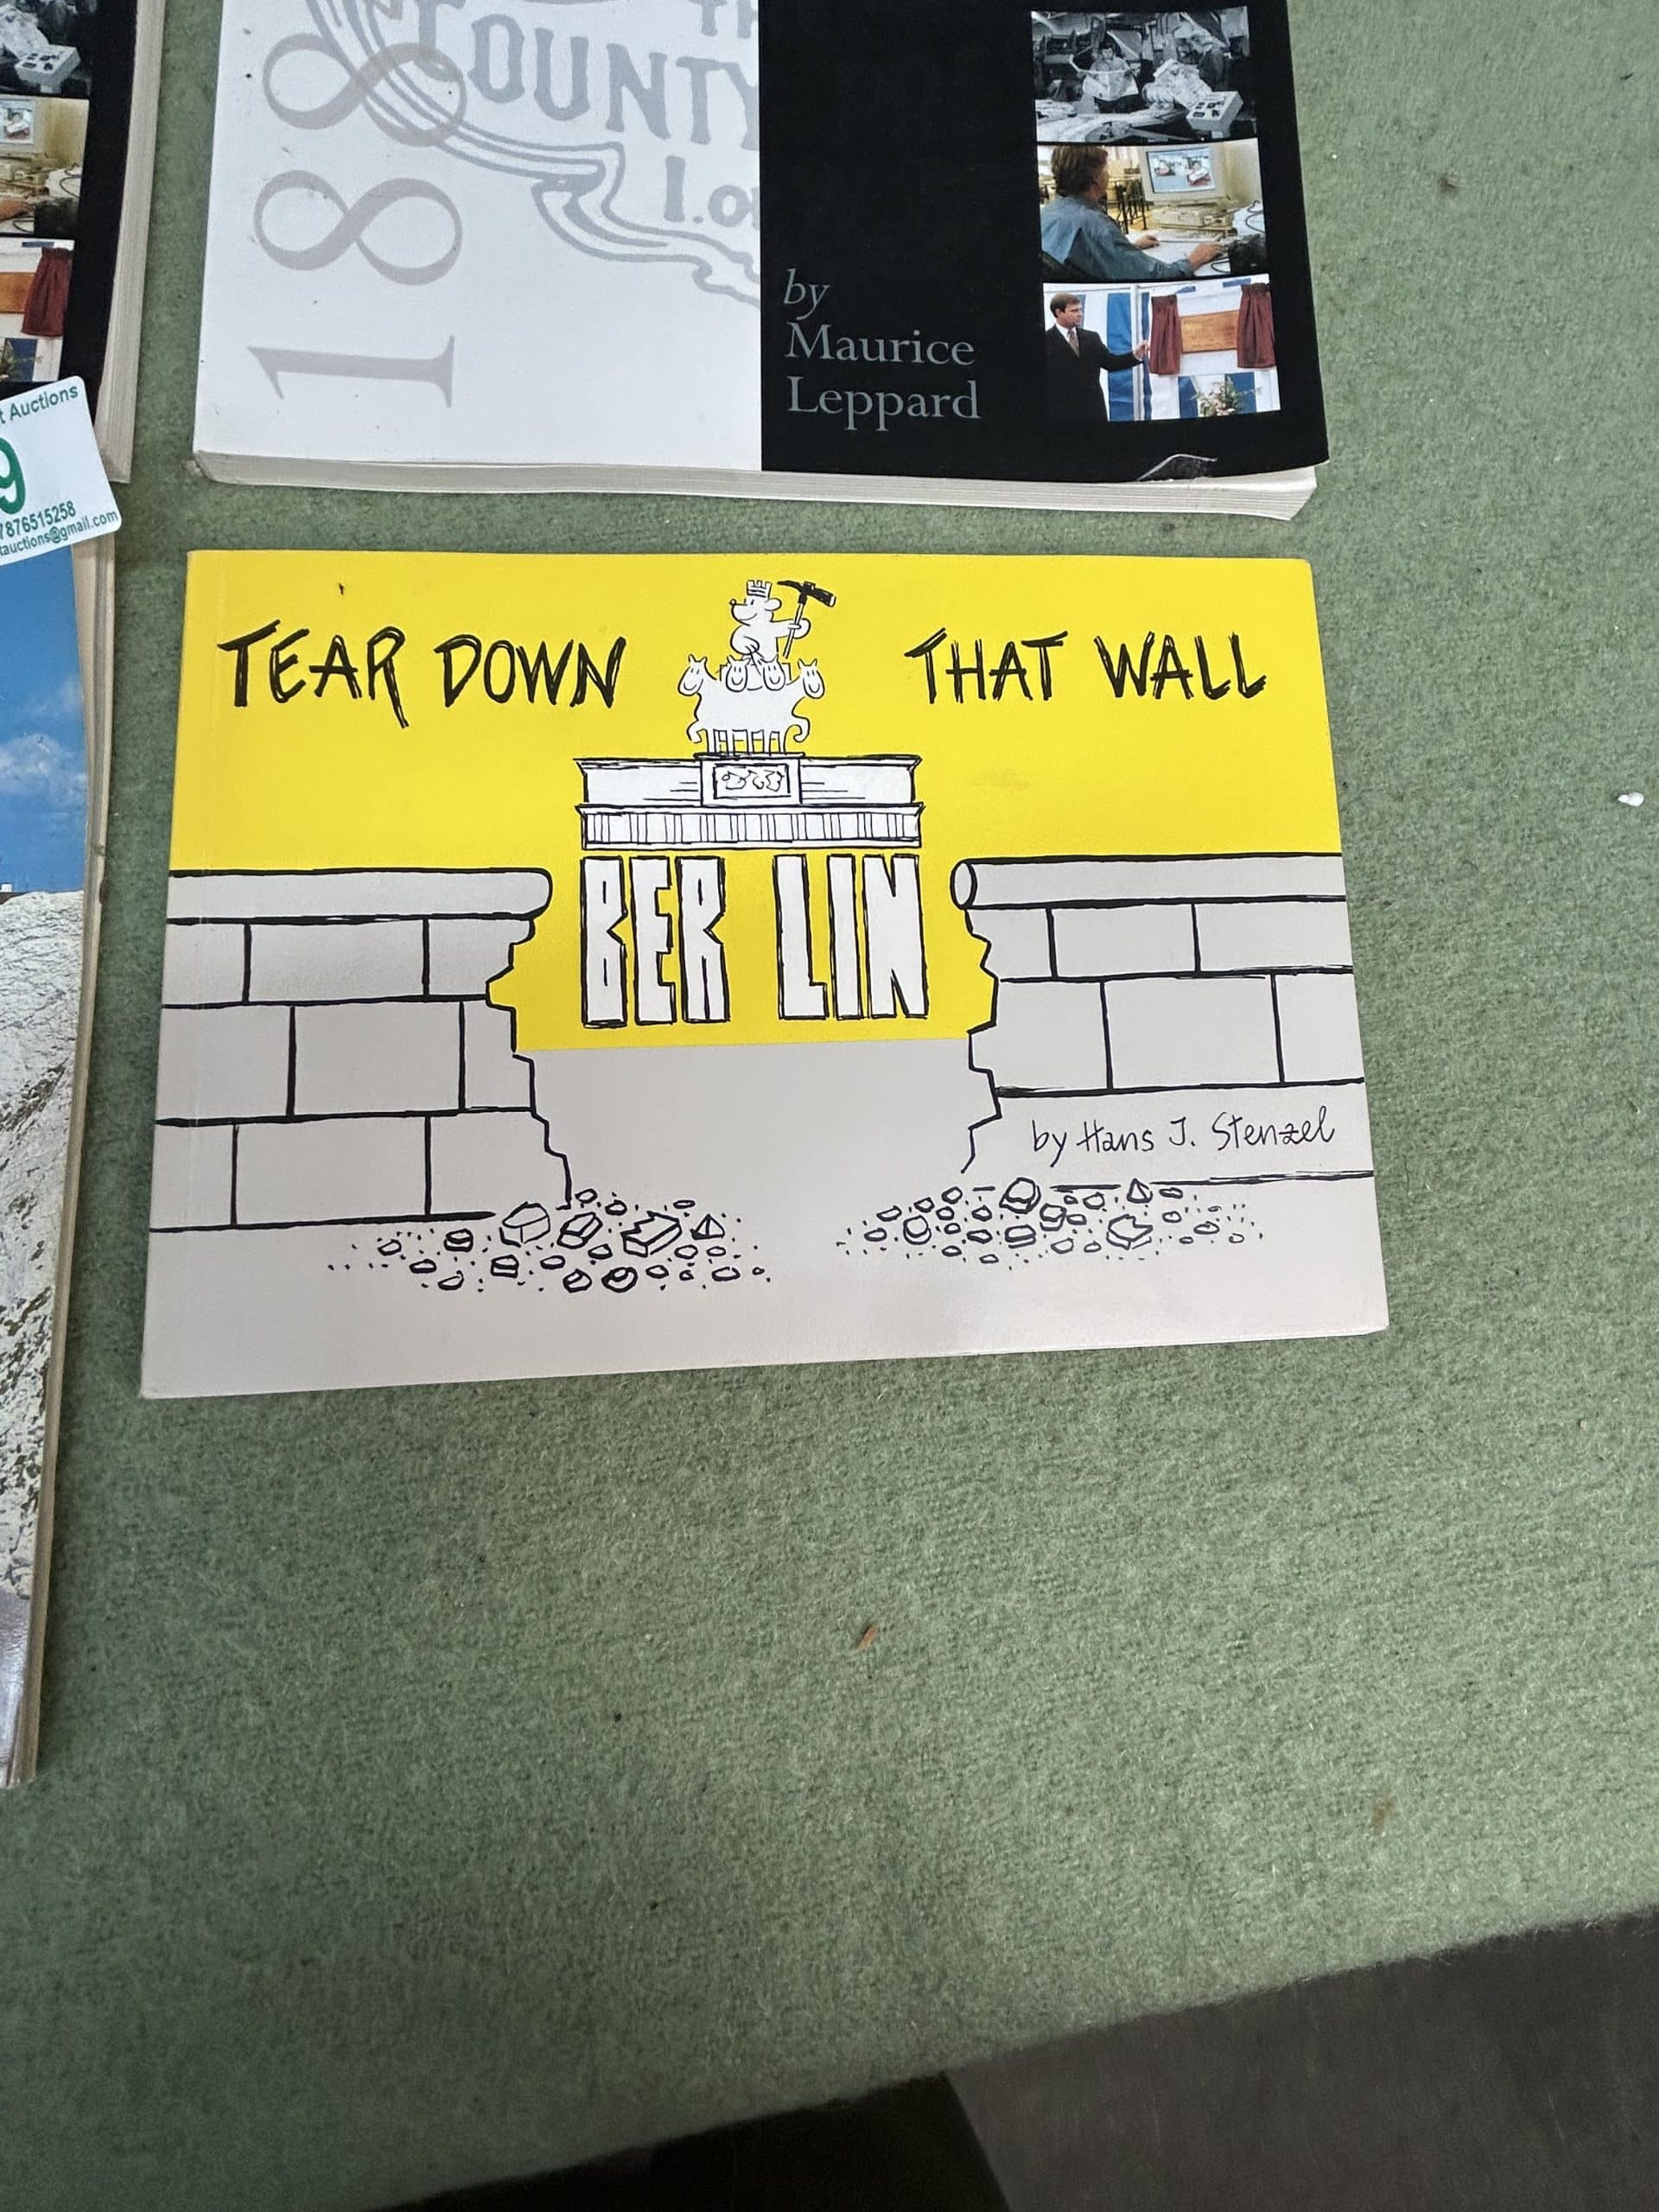 COUNTY
188
by
Maurice
Leppard
t Auctions
9
7876515258
tauctions@gmail.com
TEAR DOWN THAT WALL
BER LIN
by Hans J. Stenzel